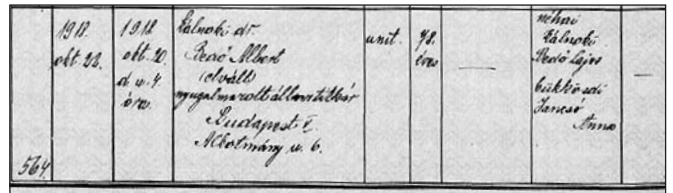 1918.
okt. 23.
564.
1918.
okt. 20.
d. u. 4.
óra.
Kálnoki dr.
Bedő Albert
(elvált)
nyugalmazott államtitkár
Budapest V.
Alkotmány u. 6.
unit.
78.
éves
néhai
Kálnoki
Bedő Lajos
bükkösdi
Jancsó
Anna